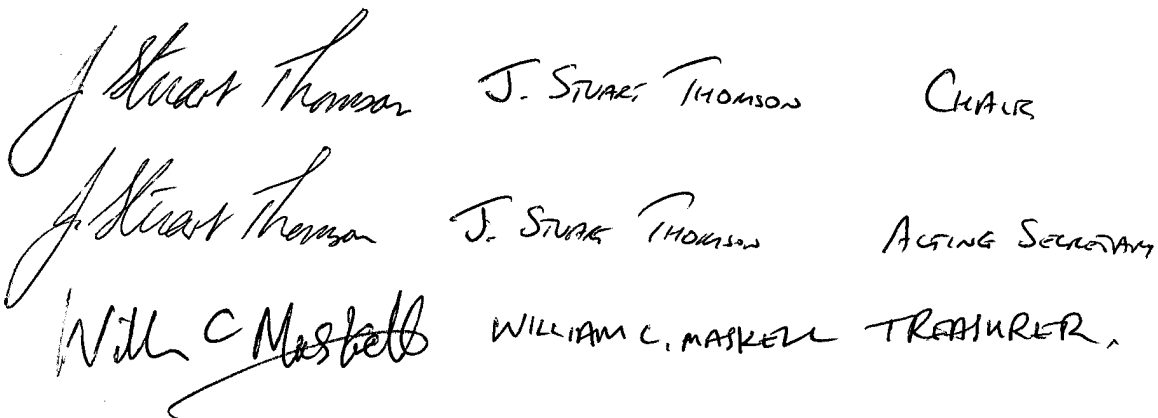 J Stuart Thomson J. STUART THOMSON CHAIR
J. Stuart Thomson J. STUART THOMSON ACTING SECRETARY
Willm C Maskell WILLIAM C. MASKELL TREASURER.